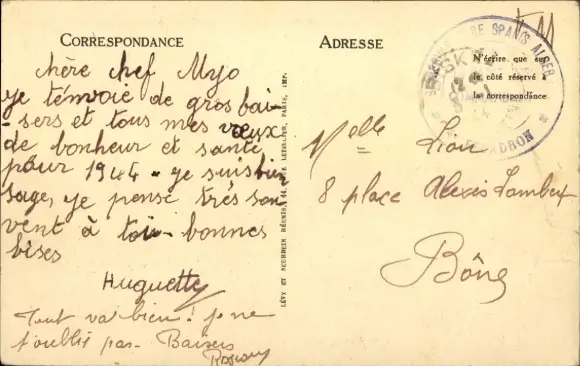 CORRESPONDANCE
chère chef Myo
je t'envoie de gros bai-
-sers et tous mes vœux
de bonheur et santé
pour 1944 - je suis bien
sage, je pense très sou
vent à toi - bonnes
bises
Huguette
Tout va bien! je ne
t'oublie pas - Baisers
LÉVY ET NEURDEIN RÉUNIS, 44, LETELLIER, PARIS, IMP.
ADRESSE
F M
N'écrire que sur
le côté réservé à
la correspondance.
DE SPAHIS ALGER
ESCADRON
Melle Lion
8 place Alexis Lambert
Bône